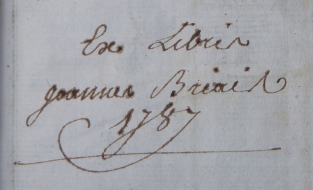 Ex Libris
Joannes Briais
1787